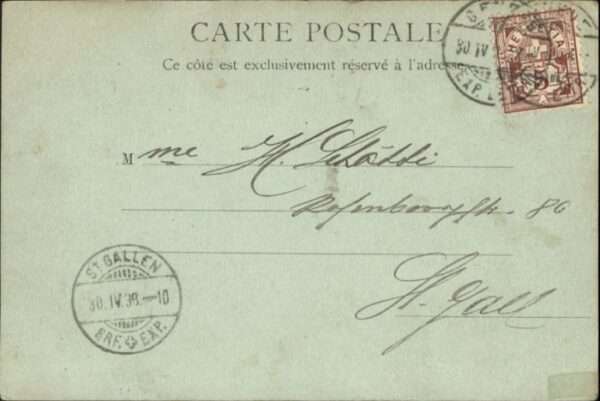 CARTE POSTALE
Ce côté est exclusivement réservé à l'adresse
Mme H. Schätti
Rosenbergstr. 86
St. Gall
ST. GALLEN
30. IV. 98.—10
BRF. EXP.
30 IV
EXP. L
HELVETIA
5